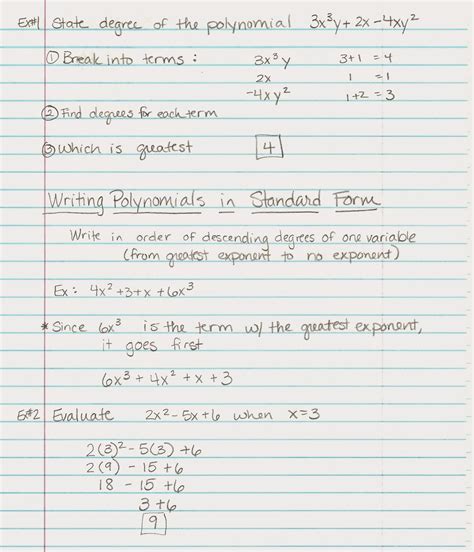 Ex#1 State degree of the polynomial 3x³y + 2x - 4xy²
① Break into terms : 3x³y 3+1 = 4
2x 1 = 1
-4xy² 1+2 = 3
② Find degrees for each term
③ Which is greatest 4
Writing Polynomials in Standard Form
Write in order of descending degrees of one variable
(from greatest exponent to no exponent)
Ex: 4x² + 3 + x + 6x³
* Since 6x³ is the term w/ the greatest exponent,
it goes first
6x³ + 4x² + x + 3
Ex#2 Evaluate 2x² - 5x + 6 when x=3
2(3)² - 5(3) + 6
2(9) - 15 + 6
18 - 15 + 6
3 + 6
9